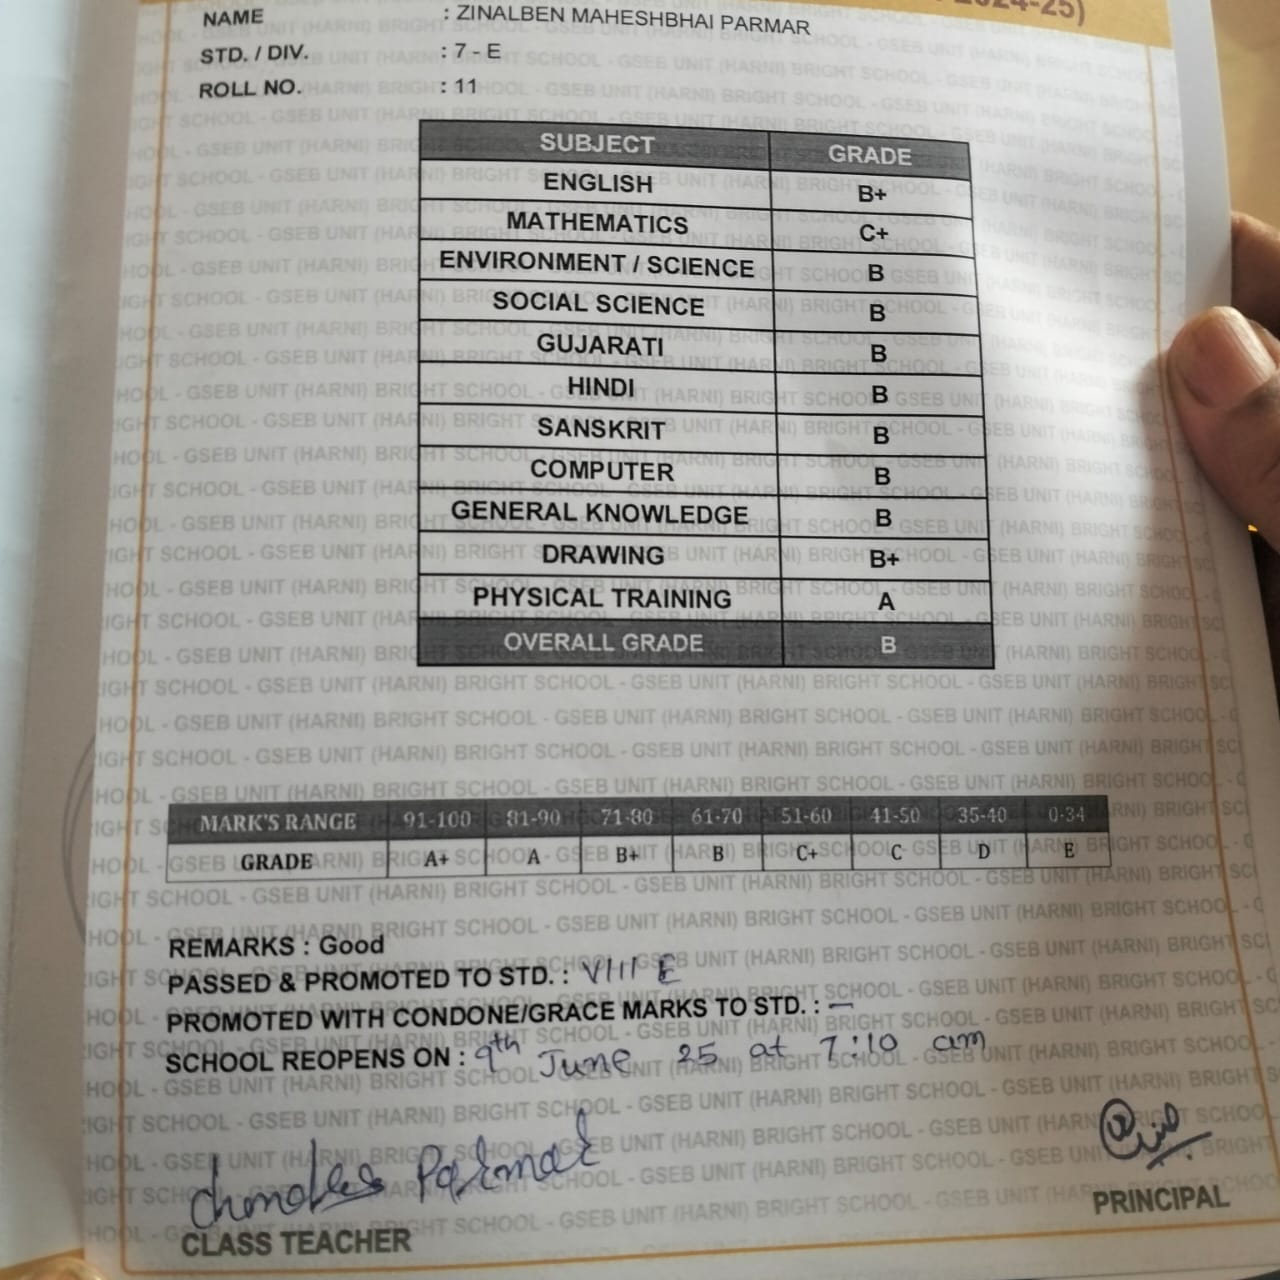 2024-25)
NAME : ZINALBEN MAHESHBHAI PARMAR
STD. / DIV. : 7 - E
ROLL NO. : 11
SUBJECT GRADE
ENGLISH B+
MATHEMATICS C+
ENVIRONMENT / SCIENCE B
SOCIAL SCIENCE B
GUJARATI B
HINDI B
SANSKRIT B
COMPUTER B
GENERAL KNOWLEDGE B
DRAWING B+
PHYSICAL TRAINING A
OVERALL GRADE B
MARK'S RANGE 91-100 81-90 71-80 61-70 51-60 41-50 35-40 0-34
GRADE A+ A B+ B C+ C D E
REMARKS : Good
PASSED & PROMOTED TO STD. : VIII E
PROMOTED WITH CONDONE/GRACE MARKS TO STD. : —
SCHOOL REOPENS ON : 9th June 25 at 7:10 am
Parmar
CLASS TEACHER
PRINCIPAL
BRIGHT SCHOOL - GSEB UNIT (HARNI)